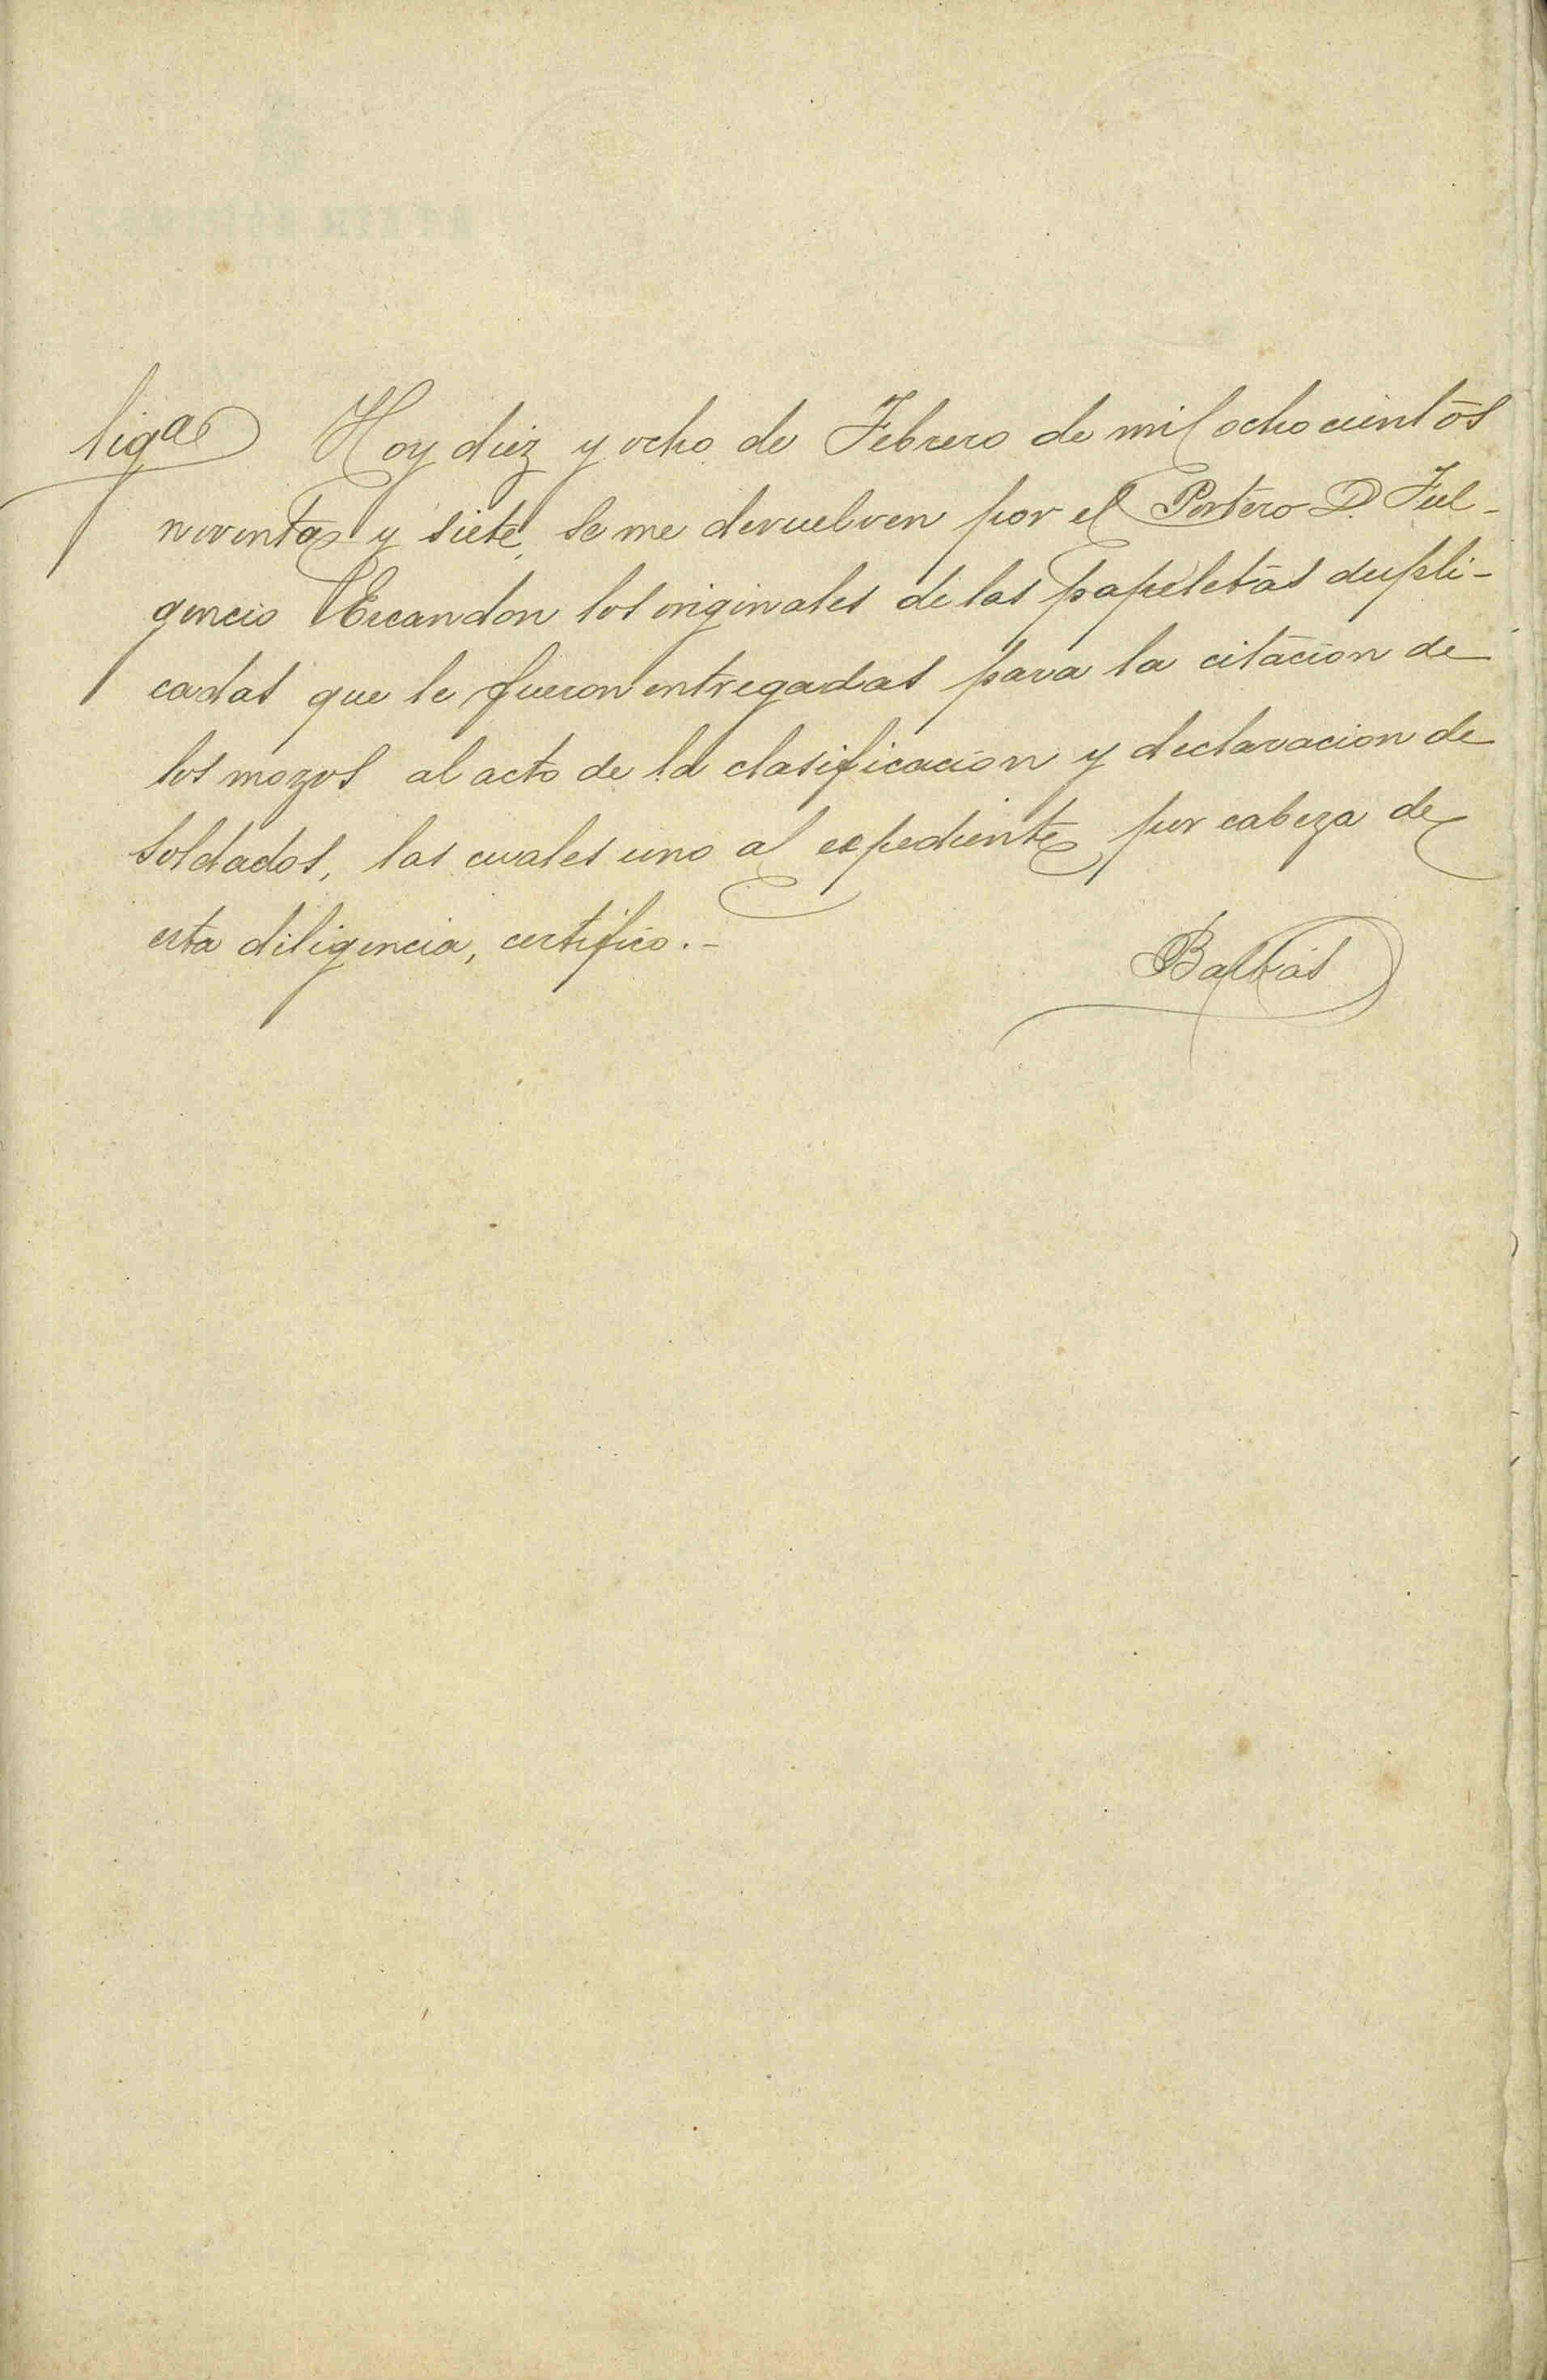 ligas Hoy diez y ocho de Febrero de mil ochocientos
noventa y siete, se me devuelven por el Portero D. Ful-
gencio Escandon los originales de las papeletas dupli-
cadas que le fueron entregadas para la citacion de
los mozos al acto de la clasificacion y declaracion de
soldados, las cuales uno al expediente por cabeza de
esta diligencia, certifico.-
Balbás